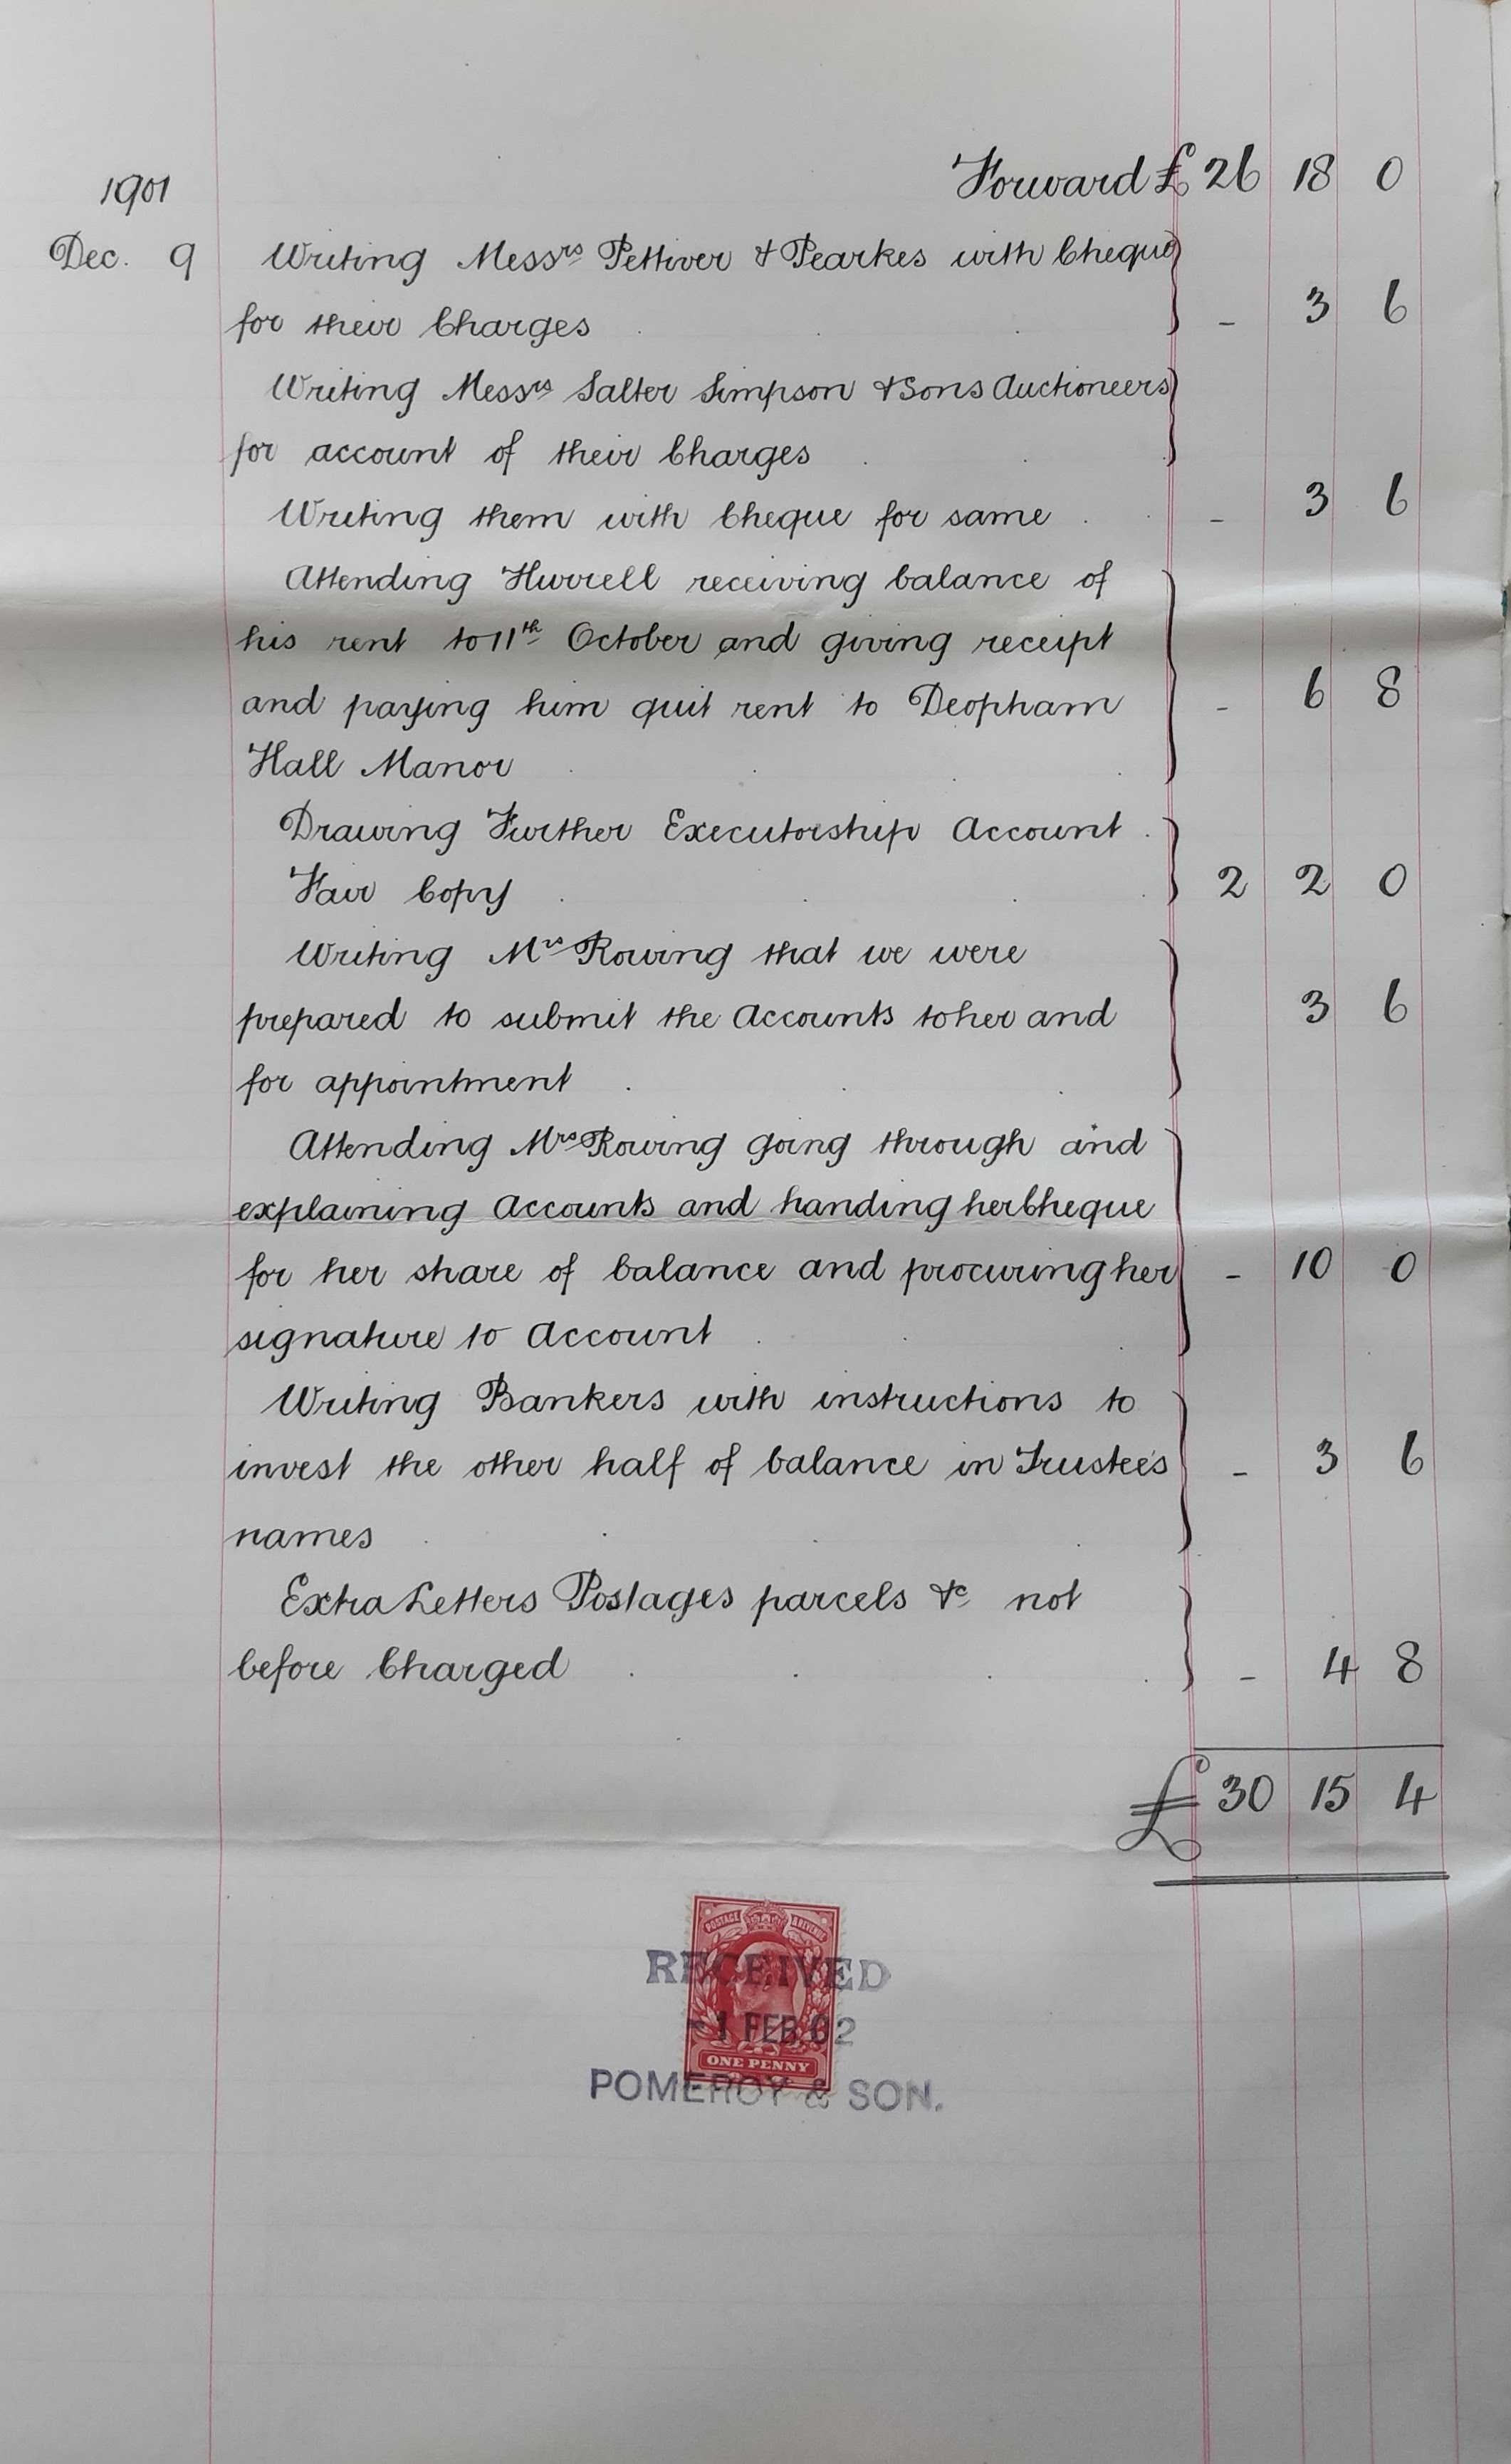 Forward £ 26 18 0
1901
Dec. 9 Writing Messrs Pettiver & Pearkes with Cheque
for their Charges - 3 6
Writing Messrs Salter Simpson & Sons Auctioneers
for account of their Charges
Writing them with Cheque for same - 3 6
Attending Hurrell receiving balance of
his rent to 11th October and giving receipt
and paying him quit rent to Deopham - 6 8
Hall Manor
Drawing Further Executorship Account
Fair Copy 2 2 0
Writing Mrs Rowing that we were
prepared to submit the Accounts to her and 3 6
for appointment
Attending Mrs Rowing going through and
explaining Accounts and handing her Cheque
for her share of balance and procuring her - 10 0
signature to Account
Writing Bankers with instructions to
invest the other half of balance in Trustees - 3 6
names
Extra Letters Postages parcels &c not
before Charged - 4 8
£ 30 15 4
POSTAGE & REVENUE
RECEIVED
-1 FEB.02
ONE PENNY
POMEROY & SON.